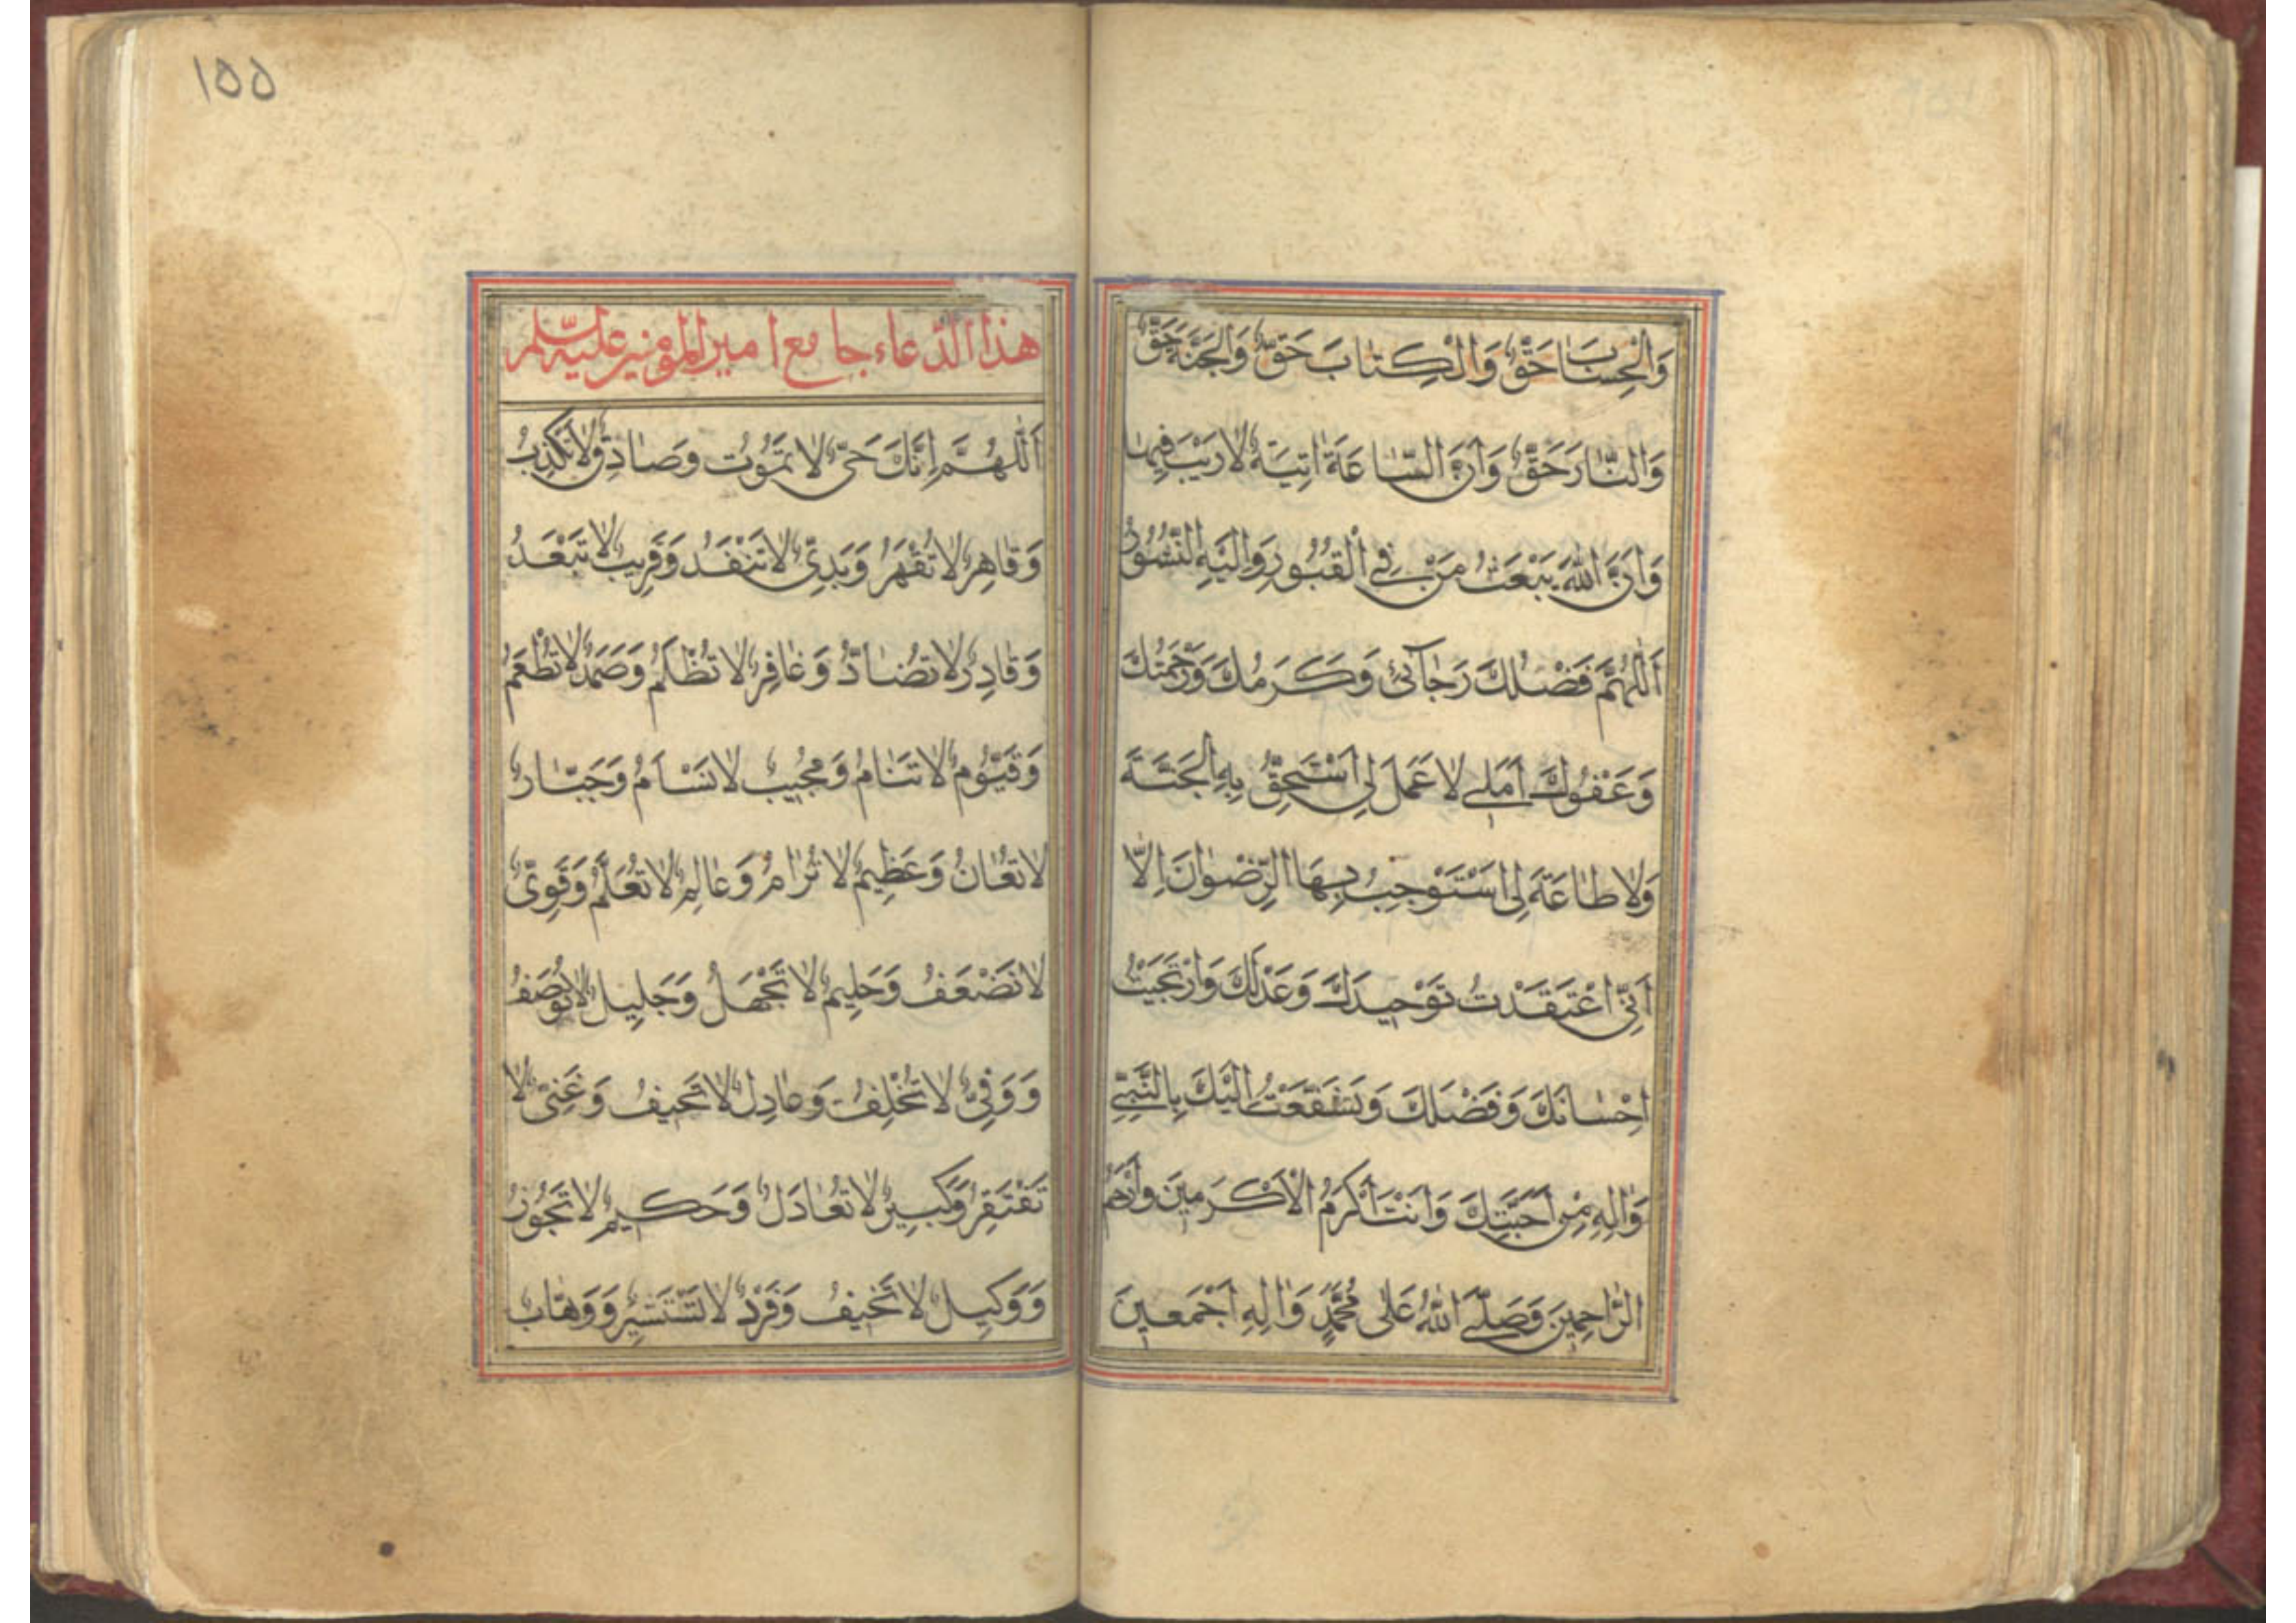 وَالْحِسَابَ حَقٌّ وَالْكِتَابَ حَقٌّ وَالْجَنَّةَ حَقٌّ
وَالنَّارَ حَقٌّ وَاَنَّ السَّاعَةَ اٰتِيَةٌ لَا رَيْبَ فِيهَا
وَاَنَّ اللّٰهَ يَبْعَثُ مَنْ فِي الْقُبُورِ وَاِلَيْهِ النُّشُورُ
اَللّٰهُمَّ فَضْلُكَ رَجَآئِي وَكَرَمُكَ وَرَحْمَتُكَ
وَعَفْوُكَ اَمَلِي لَا عَمَلَ لِي اَسْتَحِقُّ بِهِ الْجَنَّةَ
وَلَا طَاعَةَ لِي اَسْتَوْجِبُ بِهَا الرِّضْوَانَ اِلَّا
اَنِّي اعْتَقَدْتُ تَوْحِيدَكَ وَعَدْلَكَ وَارْتَجَيْتُ
اِحْسَانَكَ وَفَضْلَكَ وَتَشَفَّعْتُ اِلَيْكَ بِالنَّبِيِّ
وَاٰلِهِ مِنْ اَحِبَّتِكَ وَاَنْتَ اَكْرَمُ الْاَكْرَمِينَ وَاَرْحَمُ
الرَّاحِمِينَ وَصَلَّى اللّٰهُ عَلٰى مُحَمَّدٍ وَاٰلِهِ اَجْمَعِينَ
١٥٥
هذا الدّعاء جامع امير المؤمنين عليه السّلم
اَللّٰهُمَّ اِنَّكَ حَيٌّ لَا تَمُوتُ وَصَادِقٌ لَا تَكْذِبُ
وَقَاهِرٌ لَا تُقْهَرُ وَبَدِيٌّ لَا تَنْفَدُ وَقَرِيبٌ لَا تَبْعَدُ
وَقَادِرٌ لَا تُضَادُّ وَغَافِرٌ لَا تُظْلَمُ وَصَمَدٌ لَا تُطْعَمُ
وَقَيُّومٌ لَا تَنَامُ وَمُجِيبٌ لَا تَسْاَمُ وَجَبَّارٌ
لَا تُعَانُ وَعَظِيمٌ لَا تُرَامُ وَعَالِمٌ لَا تُعَلَّمُ وَقَوِيٌّ
لَا تَضْعَفُ وَحَلِيمٌ لَا تَجْهَلُ وَجَلِيلٌ لَا تُوصَفُ
وَوَفِيٌّ لَا تُخْلِفُ وَعَادِلٌ لَا تَحِيفُ وَغَنِيٌّ لَا
تَفْتَقِرُ وَكَبِيرٌ لَا تُعَادَلُ وَحَكِيمٌ لَا تَجُوزُ
وَوَكِيلٌ لَا تَخِيفُ وَفَرْدٌ لَا تَسْتَشِيرُ وَوَهَّابٌ